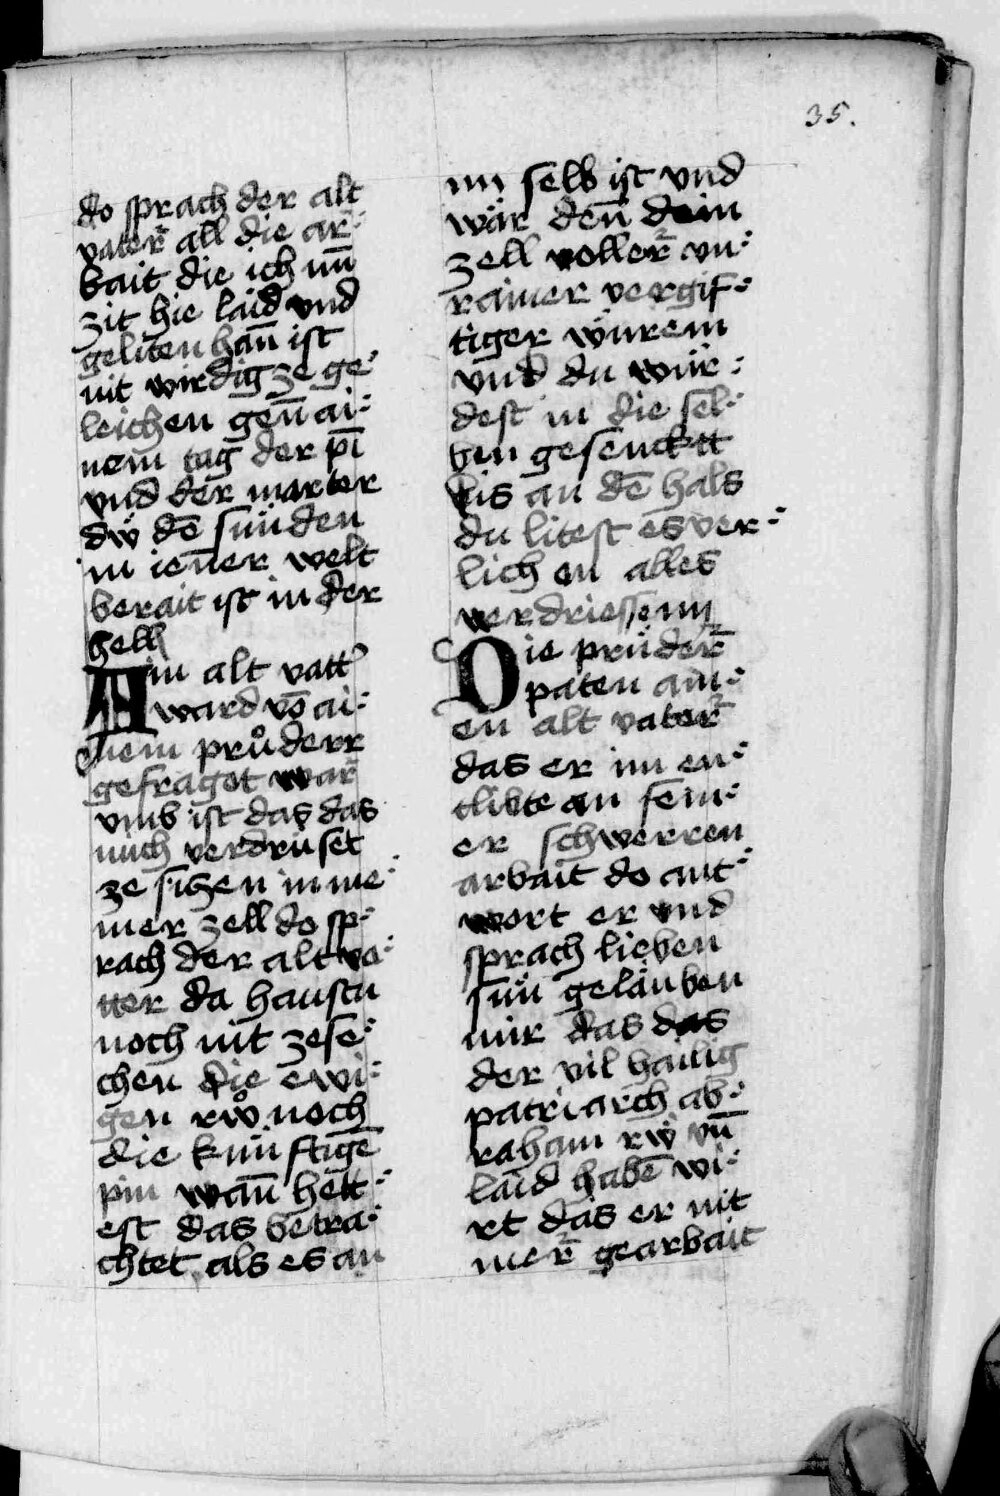 35.
do sprach der alt
vater̄ all die ar¬
bait die ich nun̄
zit hie laid vnd
geliten han̄ ist
nit wirdig ze ge¬
leichen gen̄ ai¬
nem tag der pī
vnd der marter
dẅ dē sünden
in ien̄er welt
berait ist in der
hell
Ain alt vatt̾
ward vō ai¬
nem průderr
gefraget war̄
vmb ist das das
mich verdrüset
ze siczen in me¬
mer zell do sp¬
rach der alt va¬
tter da haustu
noch nit zese¬
chen die ewi¬
gen rẘ noch
die künftigē
pin wan̄ hett¬
est das betra¬
chtet als es an
im selb ist vnd
wär den̄ dein
zell voller̄ vn¬
rainer vergif¬
tiger würem
vnd du wür¬
dest in die sel¬
ben gesencktt
bis an dē hals
du litest es ver¬
lich en alles
verdriessenn
Die prüder̄
paten ain¬
en alt vater̄
das er im en¬
tlibte an sein¬
er schwerren
arbait do ant¬
wort er vnd
sprach lieben
sün geläuben
mir das das
der vil hailig
patriarch ab¬
raham rẅ vn̄
laid habē wi¬
rt das er nit
mer̄ gearbait